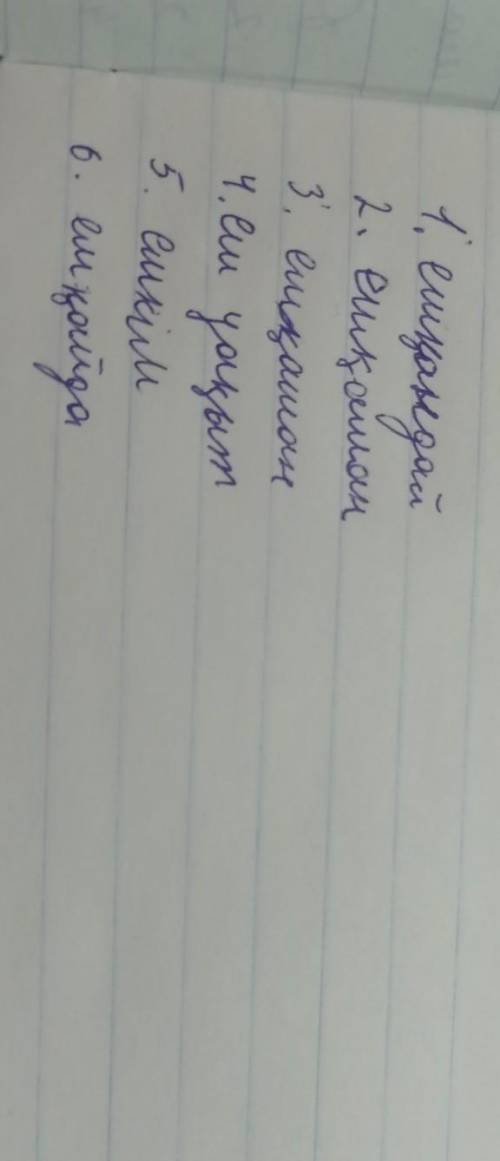 1. ешқандай
2. ешқашан
3. ешқашан
4. еш уақыт
5. ешкім
6. ешқайда